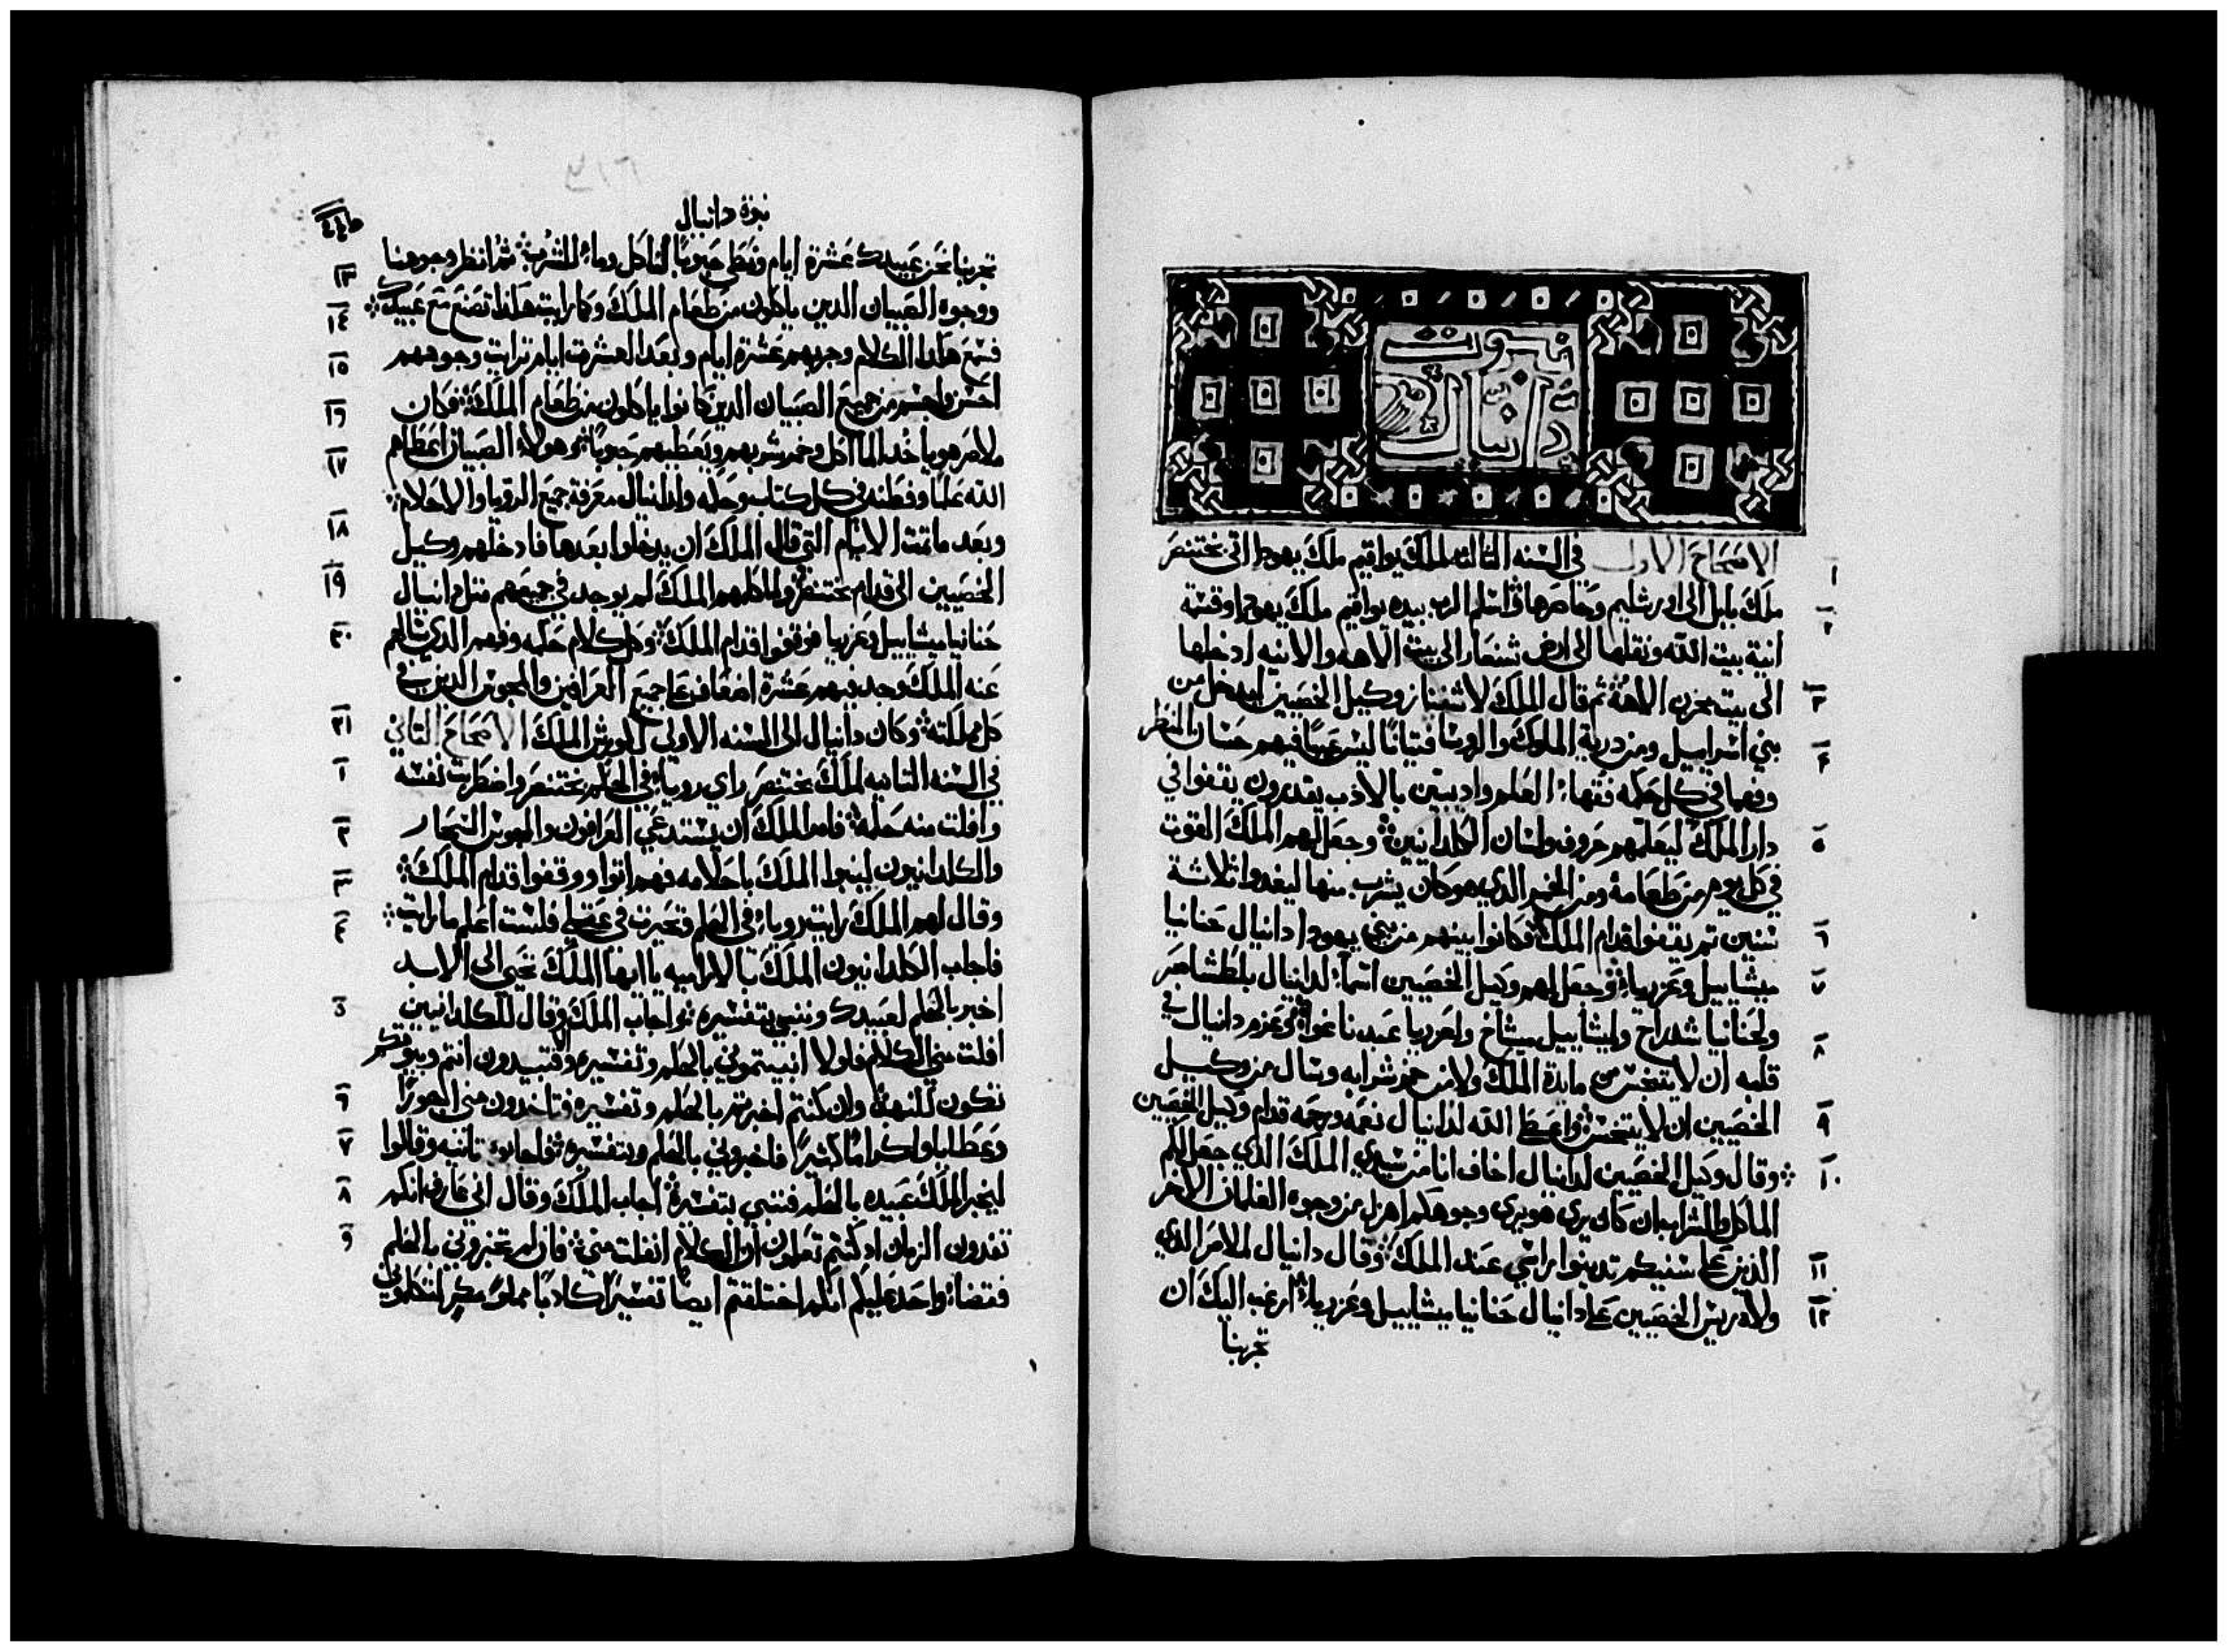 نبوت
دانيال
الاصحاح الاول في السنه الثالثه لملك يواقيم ملك يهودا اتى بختنصر
١
ملك بابل الى اورشليم وحاصرها واسلم الرب بيده يواقيم ملك يهودا وقسمه
٢
انية بيت الله ونقلها الى ارض شنعار الى بيت الاهه والانيه ادخلها
الى بيت مخزن الاهه ثم قال الملك لاشفناز وكيل الخصيين ليدخل من
٣
بني اسراييل ومن درية الملوك والروسا فتيانًا ليس عيبًا فيهم حسان المنظر
٤
وفهما في كل حكمه فقهاء العلم واديبين بالادب يقدرون يقفوا في
دار الملك ليعلمهم حروف ولسان الكلدانيين وجعل لهم الملك القوت
٥
في كل يوم من طعامه ومن الخمر الدي هو كان يشرب منها ليغدوا تلاتة
سنين تم يقفوا قدام الملك فكانوا بينهم من بني يهودا دانيال حنانيا
٦
ميشاييل وعزريا وجعل لهم وكيل الخصيين اسماء لدانيال بلطشاصر
٧
ولحنانيا شدراخ ولميشاييل ميشاخ ولعزريا عبدناغوا وعزم دانيال في
٨
قلبه ان لا يتنجس من مايدة الملك ولا من خمر شرابه وسال من وكيل
الخصيين ان لا يتنجس واعطا الله لدانيال نعمه ورحمه قدام وكيل الخصيين
٩
وقال وكيل الخصيين لدانيال اخاف انا من سيدي الملك الدي جعل لكم
١٠
الماكل والشراب ان كان يري هو يري وجوهكم اهزل من وجوه الغلمان الاخر
الدين على سنيكم تدينوا راسي عند الملك وقال دانيال لملاصر الدي
١١
ولاه ريس الخصيين على دانيال حنانيا ميشاييل وعزريا ارغب اليك ان
١٢
تجربنا
نبوة دانيال
تجربنا نحن عبيدك عشرة ايام ونعطي حبوبًا لناكل وماء للشرب تم انظر وجوهنا
١٣
ووجوه الصبيان الدين ياكلون من طعام الملك وكما رايت هكدا تصنع مع عبيدك
١٤
فسمع هدا الكلام وجربهم عشرة ايام وبعد العشرت ايام ترايت وجوههم
١٥
احسن واجسم من جميع الصبيان الدين كانوا ياكلون من طعام الملك فكان
١٦
ملاصر هو ياخد الماكل وخمر شربهم ويعطيهم حبوبًا وهولاء الصبيان اعطاهم
١٧
الله علما وفطنه في كل كتاب وحكمه ولدانيال معرفة جميع الرويا والاحلام
وبعد ما تمت الايام التي قال الملك ان يدخلوا بعدها فادخلهم وكيل
١٨
الخصيين الى قدام بختنصر ولما كلمهم الملك لم يوجد في جميعهم متل دانيال
١٩
حنانيا ميشاييل وعزريا فوقفوا قدام الملك وكل كلام حكمه وفهم الدي سالهم
٢٠
عنه الملك وجد فيهم عشرة اضعاف على جميع العرافين والمجوس الدين في
كل مملكته وكان دانيال الى السنه الاولى لكورش الملك الاصحاح التاني
٢١
في السنه التانيه لملك بختنصر راي رويا في الحلم بختنصر واضطربت نفسه
١
وافلت منه حلمه فامر الملك ان يستدعي العرافون والمجوس السحار
٢
والكلدانيون لينبوا الملك باحلامه فهم اتوا ووقفوا قدام الملك
٣
وقال لهم الملك رايت رويا في الحلم وتحيرت في عقلي فلست اعلم ما رايت
٤
فاجاب الكلدانيون الملك بالاراميه يا ايها الملك تحيي الى الابد
اخبر بالحلم لعبيدك وننبي بتفسيره فاجاب الملك وقال للكلدانيين
٥
افلت مني الكلام فلولا انبيتموني بالحلم وتفسيره فتبيدون انتم وبيوتكم
تكون للنهبة وان كنتم اخبرتم بالحلم وتفسيره فتاخدون مني اجورًا
٦
وعطايا واكرامًا كتيرًا فاخبروني بالحلم وبتفسيره فاجابوه تانيه وقالوا
٧
ليخبر الملك عبيده بالحلم فننبي بتفسيره اجاب الملك وقال اني عارف انكم
٨
تفدون الزمان اد كنتم تعلمون ان الكلام انفلت مني فان لم تخبروني بالحلم
٩
فقضاء واحد عليكم انكم اختلقتم ايضا تفسيرًا كادبًا مملوًا مكر لتتكلموا لي